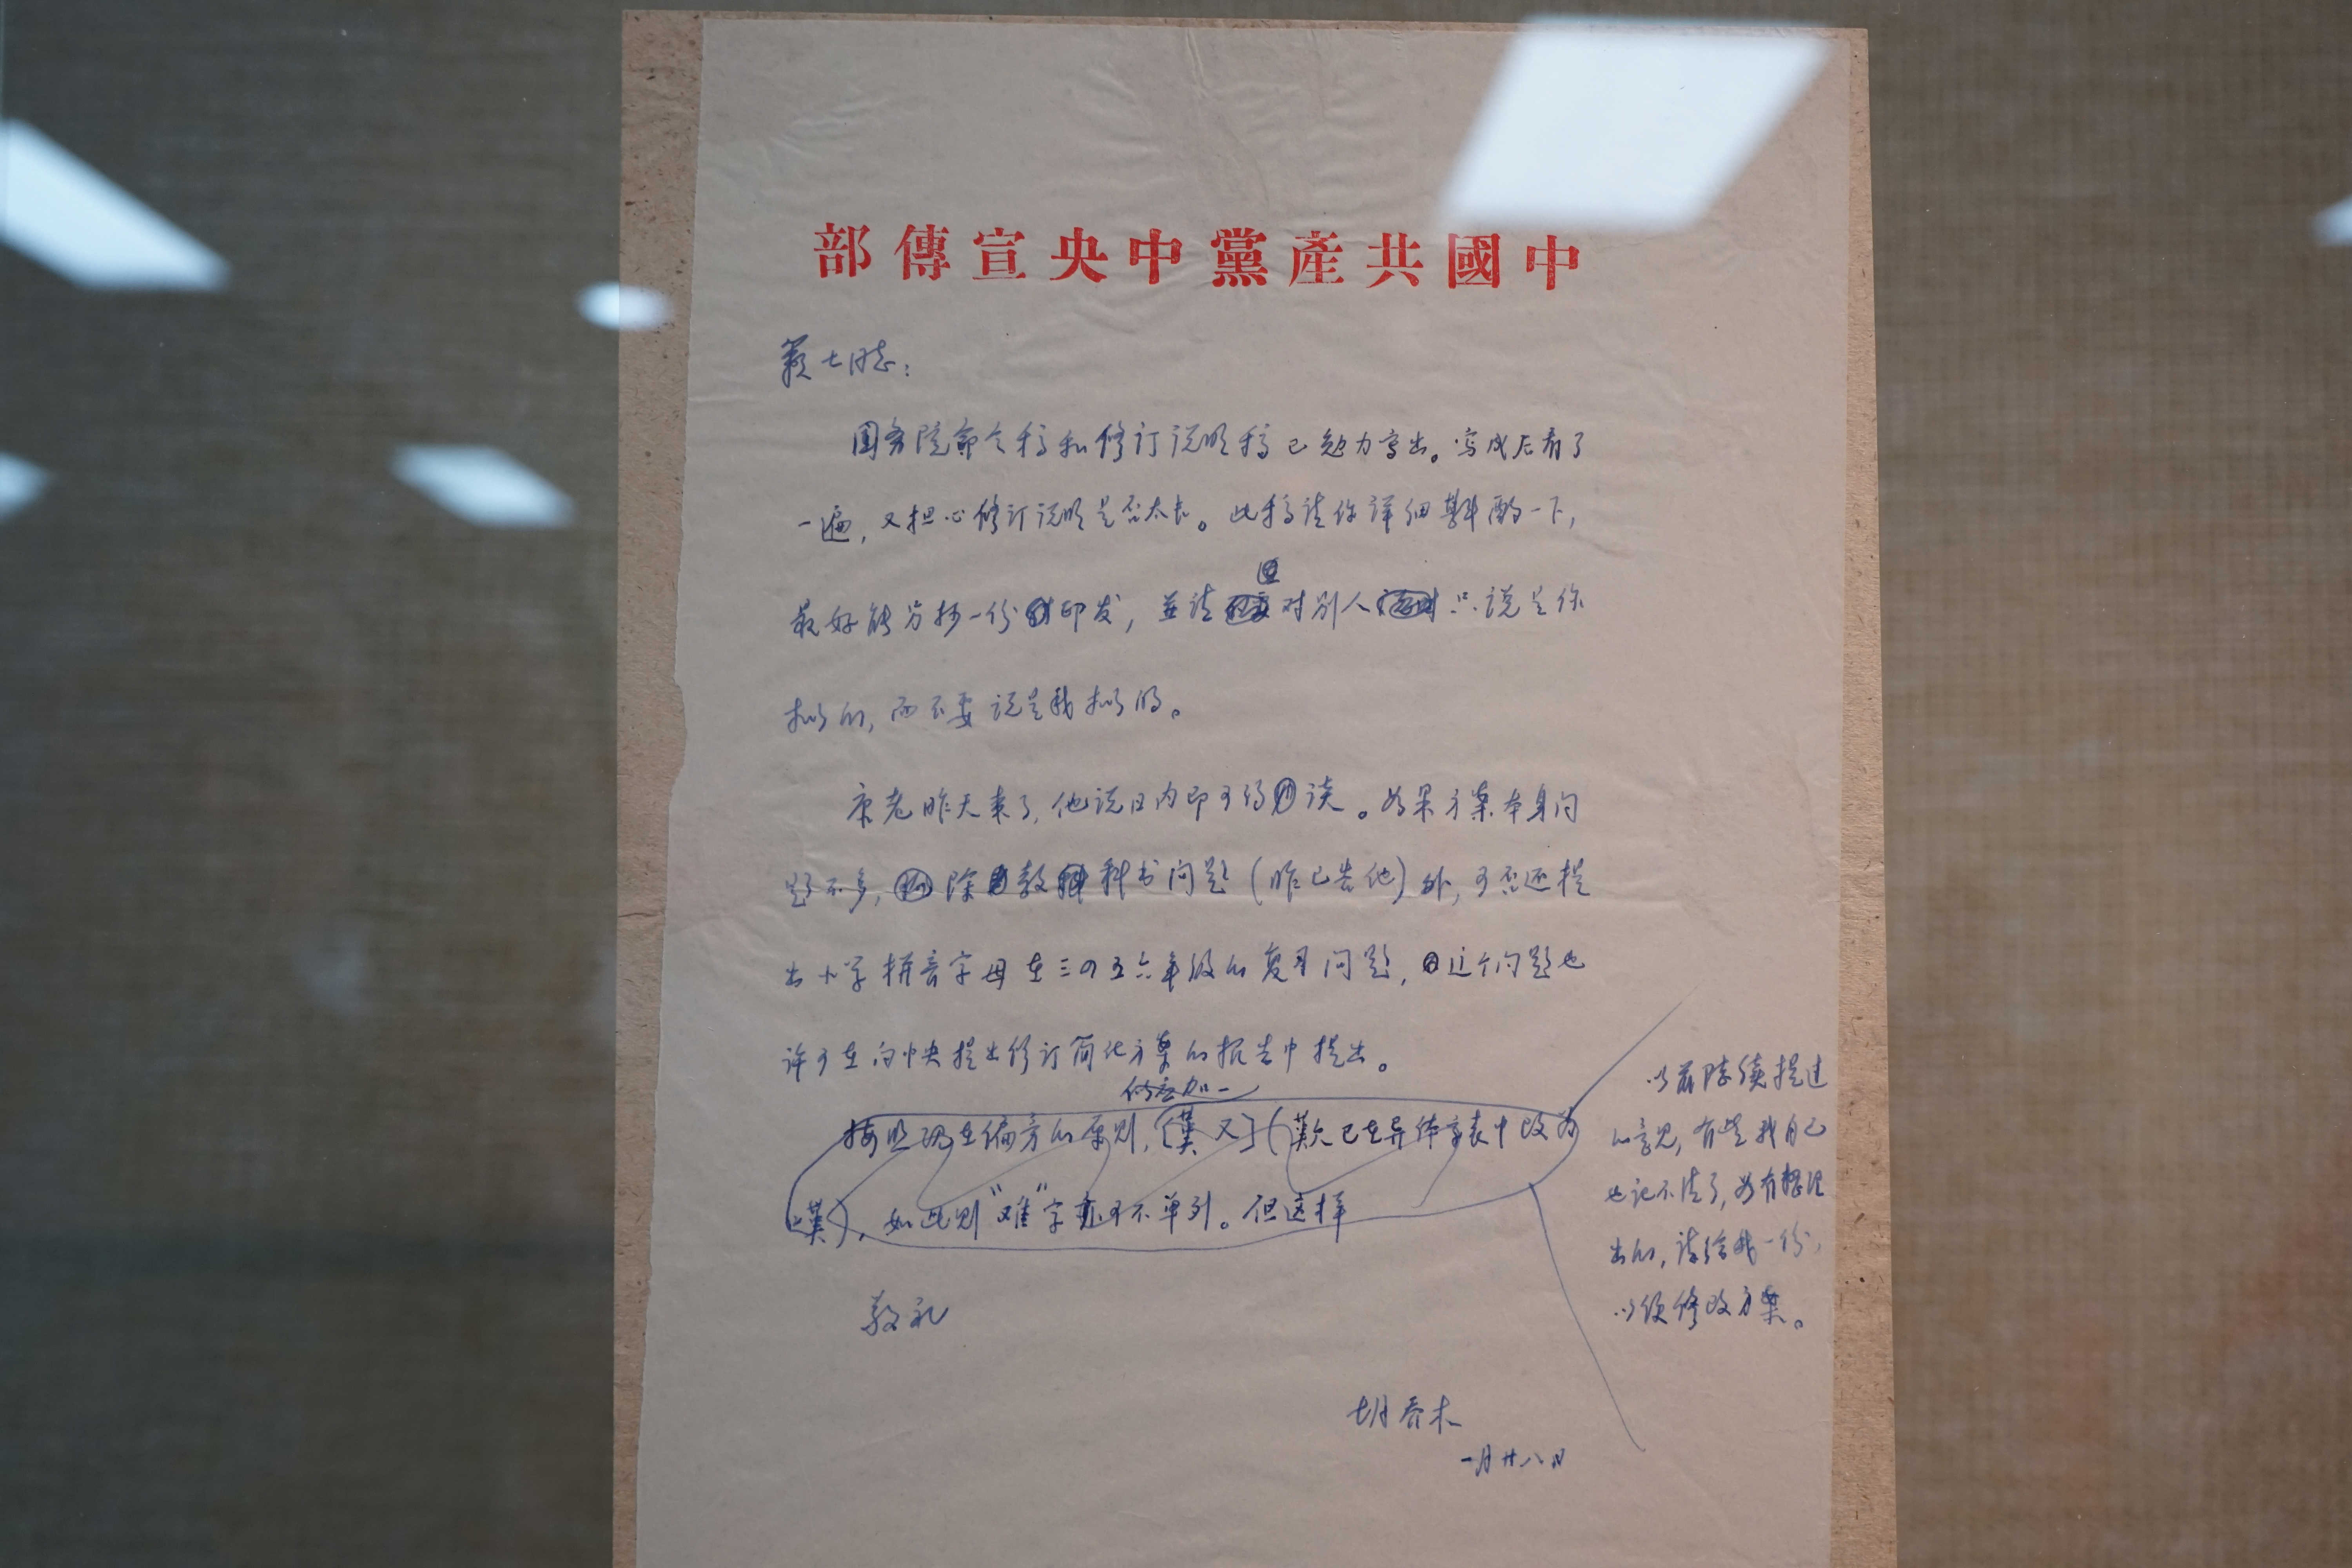 部傳宣央中黨產共國中
籁士同志：
国务院命令稿和修订说明稿已勉力写出。写成后看了
一遍，又担心修订说明是否太长。此稿请你详细斟酌一下，
最好能另抄一份印发，並请对别人只说是你
拟的，而不要说是我拟的。
康老昨天来了，他说日内即可约谈。如果方案本身问
题不多，除教科书问题（昨已告他）外，可否还提
出小学拼音字母在三四五六年级的复习问题，这个问题也
许可在向中央提出修订简化方案的报告中提出。
似应加一
按照现在偏旁的原则，〔䓍又〕（歎已在异体字表中改为
嘆），如此则“难”字亦可不单列。但这样
敬礼
胡乔木
一月廿八日
以前陆续提过
的意见，有些我自己
也记不清了，如有整理
出的，请给我一份，
以便修改方案。